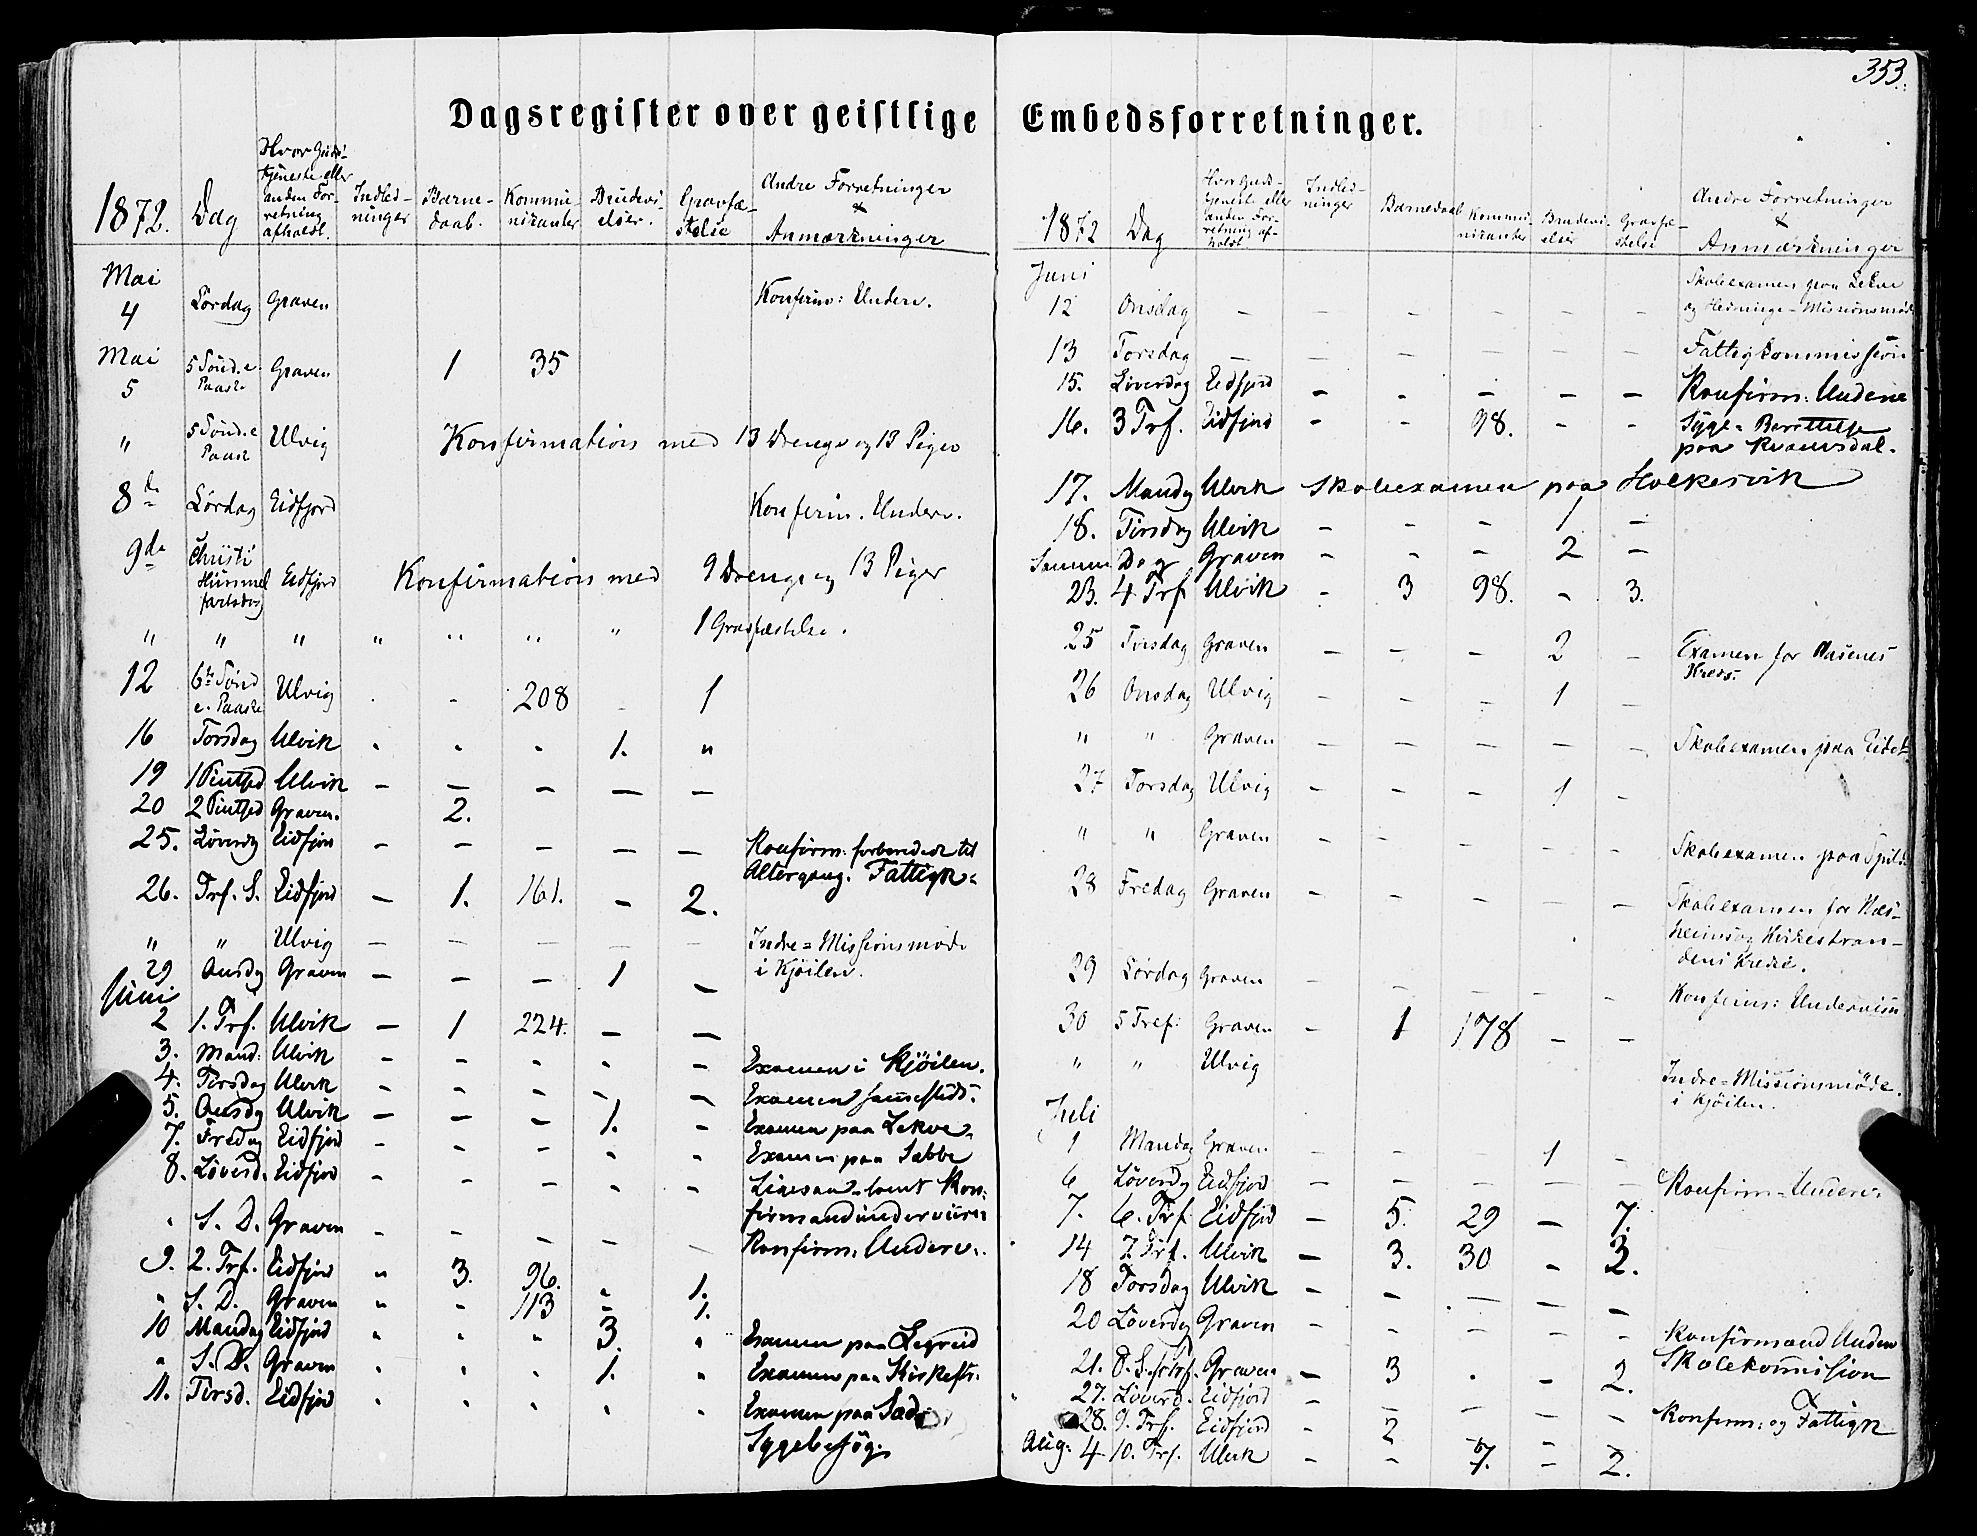 353.
Dagsregister over geistlige Embedsforretninger.
1872. Dag Hvor Guds-tjeneste eller anden For-retning afholdt. Indled-ninger Barne-daab. Kommu-nikanter Brudevi-elser. Gravfæ-stelse Andre Forretninger & Anmærkninger
Mai
4 Lördag Graven Konfirm: Underv.
Mai
5 5 Sönd. e. Paaske Graven 1 35
" 5 Sönd. e Paaske Ulvig Konfirmation med 13 Drenge og 13 Piger
8de Lördag Eidfjord Konfirm. Underv.
9de Christi Himmel fartsdag Eidfjord Konfirmation med 9 Drenge og 13 Piger
" " " " " " " 1 Gravfæstelse.
12 6te Sönd e. Paaske Ulvig - - 208 - 1
16 Torsdag Ulvik - - - 1. "
19 1 Pintsed Ulvik - - - - -
20 2 Pintsed Graven. 2.
25. Löverdg Eidfjord - - - - - Konfirm: forberedede til
Altergang. Fattigk.
26. Trf. S. Eidfjord - 1. 161. - 2.
" " Ulvig - - - - - Indre=Missionsmøde
i Kjöilen.
29 Onsdg Graven - - - 1 -
Juni
2 1. Trf. Ulvik - 1 224. - -
3. Mand: Ulvik - - - - - Examen i Kjöilen.
4. Tirsdag Ulvik - - - - - Examen sammesteds.
5. Onsdg Ulvik - - - 1. - Examen paa Lekve.
7. Fredag Eidfjord - - - - - Examen paa Sæbbe
8. Löverd. Eidfjord - - - - - samt Kon-
firmandunderviisn
" S. D. Graven - - - - - Konfirm: Underv:.
9. 2. Trf. Eidfjord " 3. 96. " 1.
" S. D. Graven " - 113 - 1.
10 Mandag Eidfjord " " " 3. " Examen paa Legreid
" S. D. Graven " " " 1. " Examen paa Kirkestr.
11. Tirsd. Eidfjord " " " " " Examen paa
Sygebesög.
1872 Dag Hvor Guds-tjeneste eller anden For-retning af-holdt Indled-ninger Barnedaab Kommu-nikanter Brudevi-elser Gravfæ-stelse Andre Forretninger & Anmærkninger
Juni
12 Onsdag - - - - - - Skoleexamen paa Lekve
og Hedninge-Missionsmöde
13 Torsdag - - - - - - Fattigkommission
15. Löverdag Eidfjord - - - - - Konfirm: Underv
16. 3 Trf. Eidfjord - - 98. - - Syge=Berettelse
paa
17. Mandg Ulvik Skoleexamen paa
18. Tirsdag Ulvik - - - 1 -
Samme Dag Graven - - - 2 -
23. 4 Trf Ulvik - 3 98. - 3.
25 Tirsdag Graven - - - 2 - Examen for
Kreds.
26 Onsdag Ulvig - - - 1 -
" " Graven - - - - - Skoleexamen paa Eidet
27 Torsdag Ulvig - - - 1 -
" " Graven - - - - - Skoleexamen paa Spilde
28 Fredag Graven - - - - - Skoleexamen for Næs-
heims og Kirkestran-
dens Kredse.
29 Lördag Graven - - - - - Konfirm: Undervisn
30 5 Tref: Graven - 1 178 - -
" " Ulvig Indre=Missionsmöde.
i Kjöilen.
Juli
1 Mandag Graven - - - 1 -
6 Löverdg Eidfjord - - - - - Konfirm=Underv:
7. 6. Trf Eidfjord - 5. 29 - 7.
14 7 Trf. Ulvik - 3. 30 - 3.
18 Torsdag Ulvik - - - - -
20 Löverdg Graven - - - - - Konfirmand Underv
Skolekommision
21. 8. S. Graven - 3 . - 2.
27. Löverd. Eidfjord - - - - - Konfirm: og Fattigk
28. 9. Trf. Eidfjord - 2 - - -
Aug: 4 10. Trf. Ulvik - - 7. - 2.